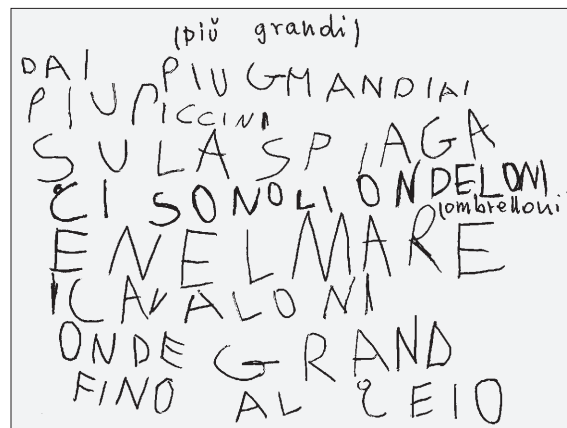 (più grandi)
DAI PIU GMANDIAI
PIU PICCINI
SULA SPIAGA
CI SONOLIONDELONI
(ombrelloni)
E NEL MARE
I CAVALONI
ONDE GRAND
FINO AL CEIO